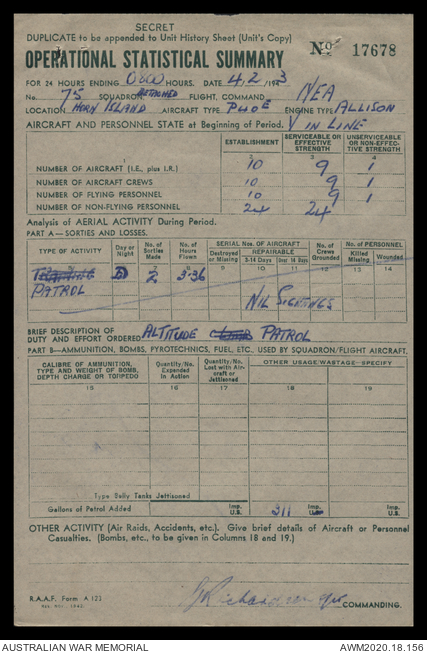 SECRET
DUPLICATE to be appended to Unit History Sheet (Unit's Copy)
OPERATIONAL STATISTICAL SUMMARY
No 17678
FOR 24 HOURS ENDING 0800 HOURS. DATE 4/2/1943
No. 75 SQUADRON ATTACHED FLIGHT, COMMAND NEA
LOCATION HORN ISLAND AIRCRAFT TYPE P40E ENGINE TYPE ALLISON
AIRCRAFT AND PERSONNEL STATE at Beginning of Period. V IN LINE
ESTABLISHMENT SERVICEABLE OR EFFECTIVE STRENGTH UNSERVICEABLE OR NON-EFFECTIVE STRENGTH
1 2 3 4
NUMBER OF AIRCRAFT (I.E., plus I.R.) 10 9 1
NUMBER OF AIRCRAFT CREWS 10 9 1
NUMBER OF FLYING PERSONNEL 10 9 1
NUMBER OF NON-FLYING PERSONNEL 24 24
Analysis of AERIAL ACTIVITY During Period.
PART A—SORTIES AND LOSSES.
TYPE OF ACTIVITY Day or Night No. of Sorties Made No. of Hours Flown SERIAL Nos. OF AIRCRAFT Destroyed or Missing REPAIRABLE 3-14 Days Over 14 Days No. of Crews Grounded No. of PERSONNEL Killed Missing Wounded
5 6 7 8 9 10 11 12 13 14
D 2 3-36
PATROL NIL SIGHTINGS
BRIEF DESCRIPTION OF
DUTY AND EFFORT ORDERED ALTITUDE PATROL
PART B—AMMUNITION, BOMBS, PYROTECHNICS, FUEL, ETC. USED BY SQUADRON/FLIGHT AIRCRAFT.
CALIBRE OF AMMUNITION, TYPE AND WEIGHT OF BOMB, DEPTH CHARGE OR TORPEDO Quantity/No. Expended in Action Quantity/No. Lost with Aircraft or Jettisoned OTHER USAGE/WASTAGE—SPECIFY
15 16 17 18 19
Type Belly Tanks Jettisoned
Gallons of Petrol Added Imp. U.S. 211 Imp. U.S. Imp. U.S.
OTHER ACTIVITY (Air Raids, Accidents, etc.). Give brief details of Aircraft or Personnel
Casualties. (Bombs, etc., to be given in Columns 18 and 19.)
R.A.A.F. Form A 123
COMMANDING.
AUSTRALIAN WAR MEMORIAL AWM2020.18.156